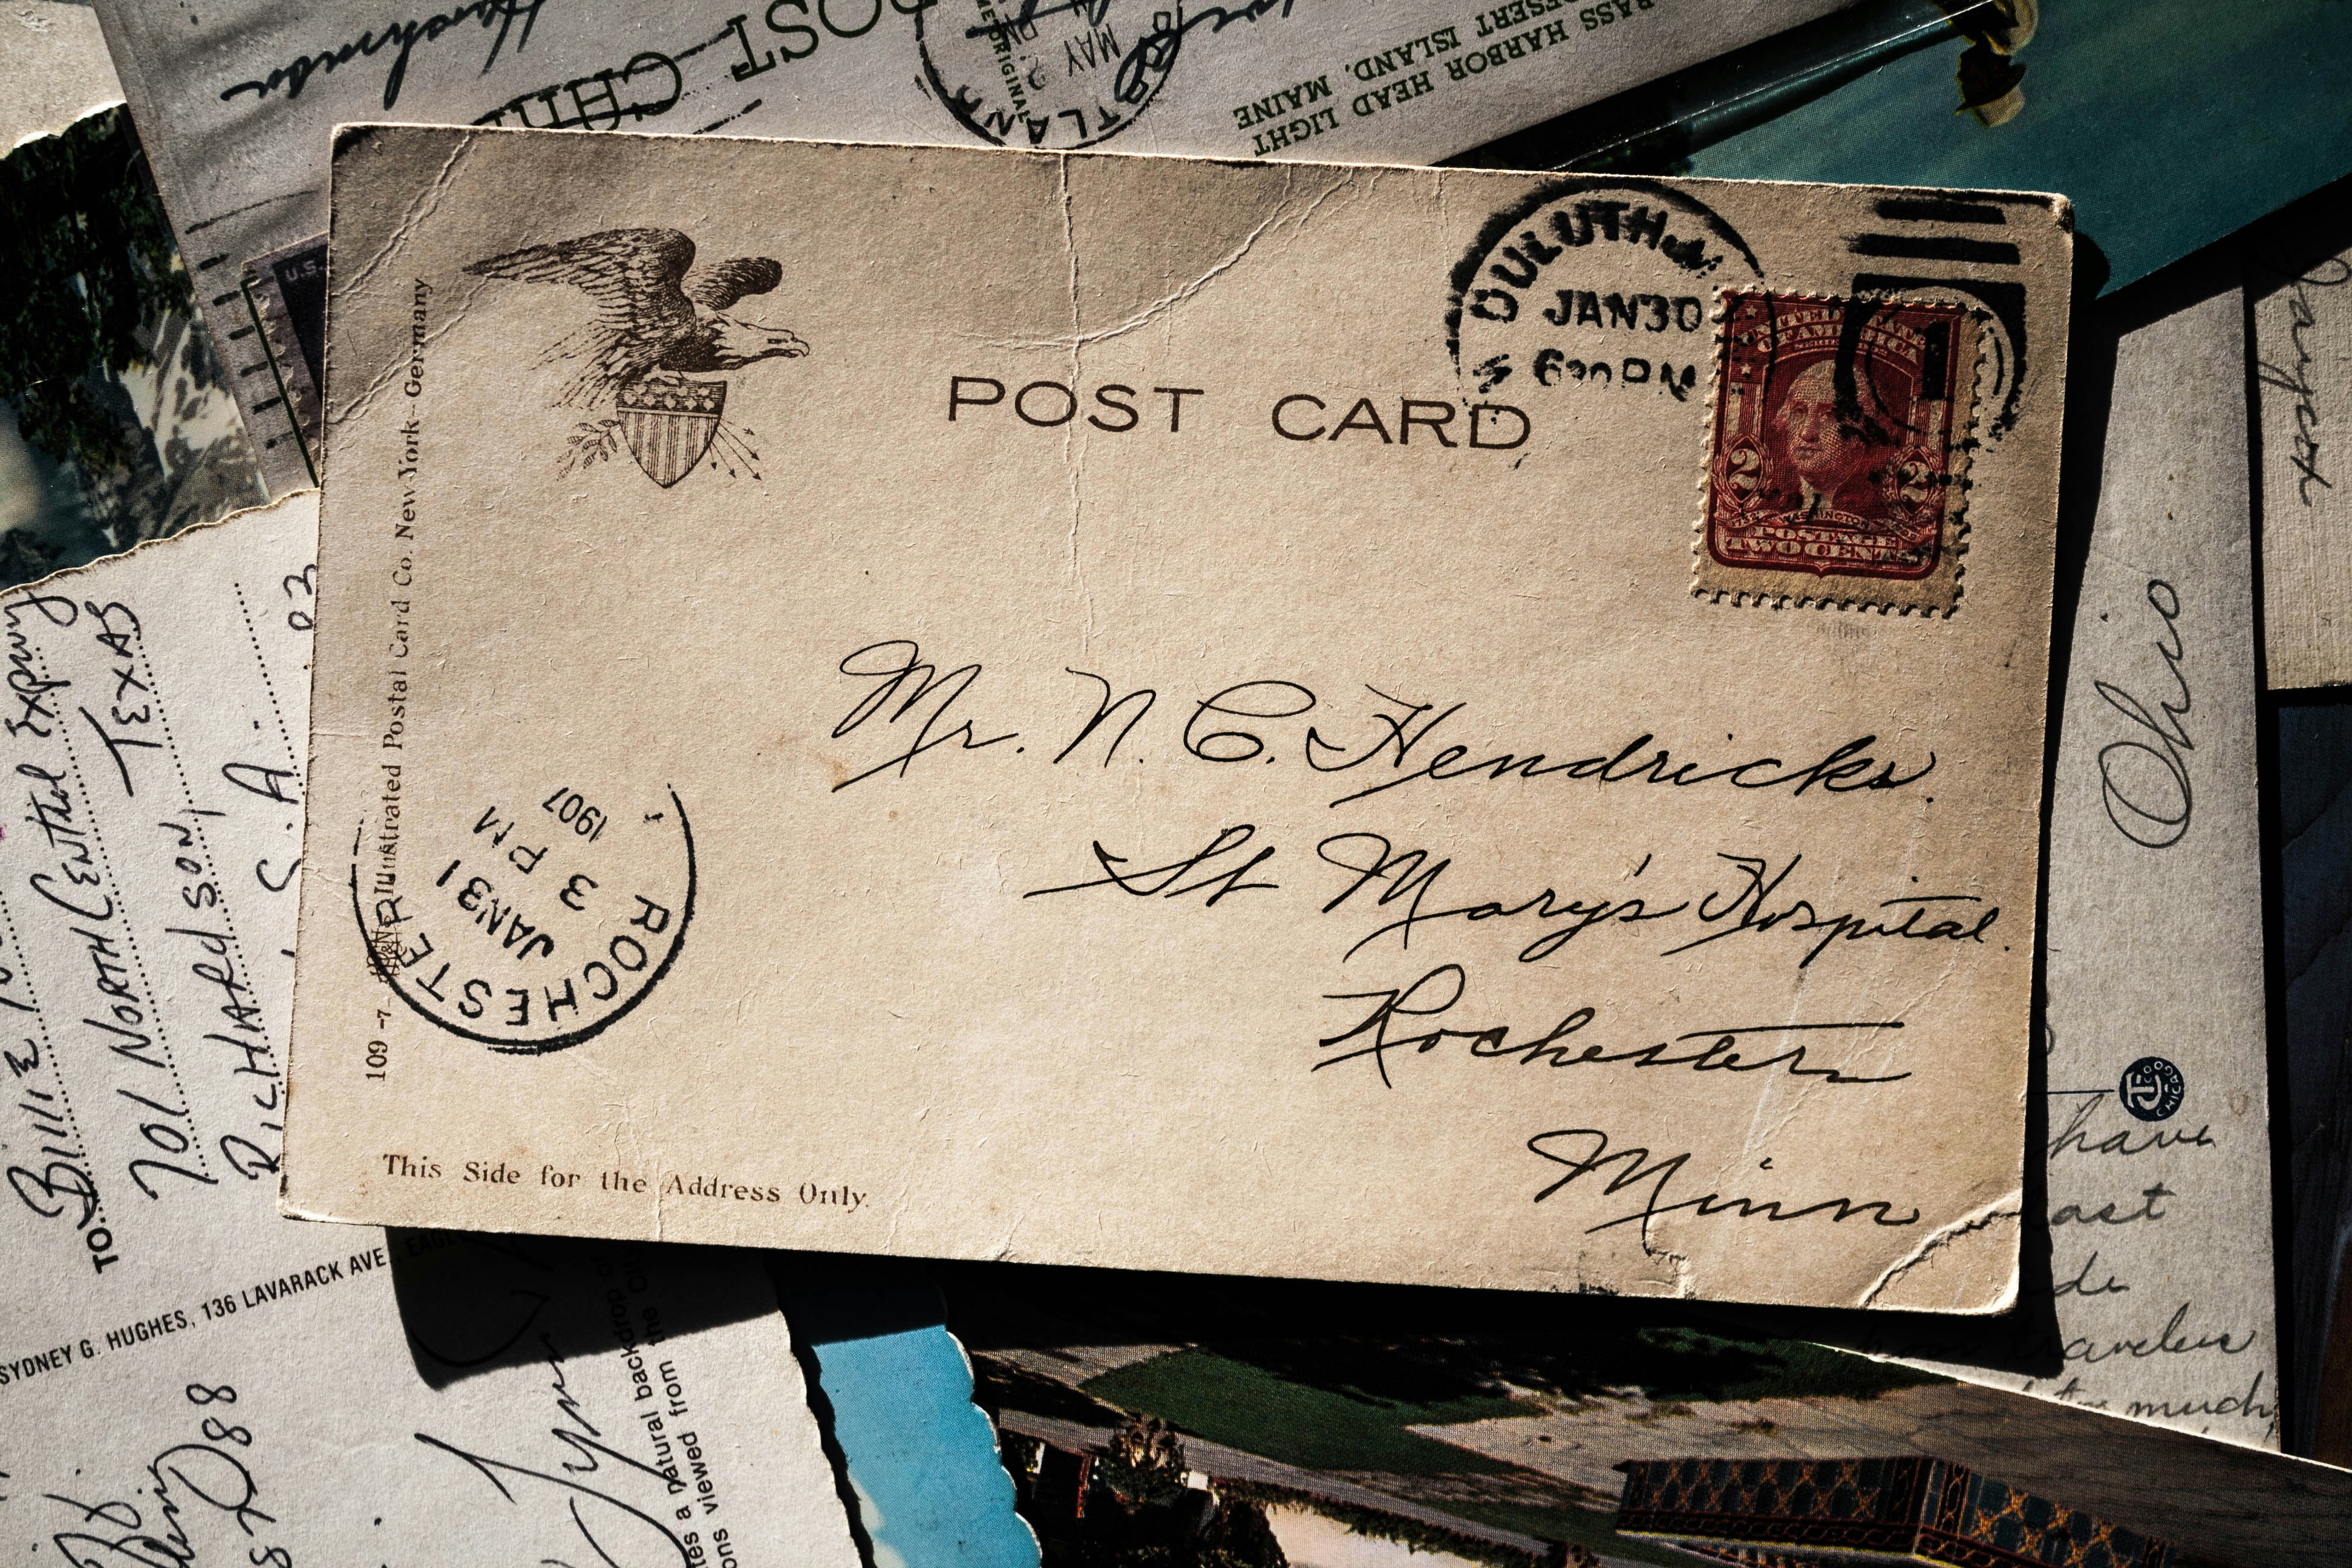 POST CARD
DULUTH
JAN 30
6 30 PM
UNITED STATES
OF AMERICA
2 2
WASHINGTON
POSTAGE
TWO CENTS
Illustrated Postal Card Co. New-York - Germany
109 - 7
Mr. N. C. Hendricks.
St Mary's Hospital.
Rochester
Minn
ROCHESTER
JAN 31
3 PM
1907
This Side for the Address Only.
BASS HARBOR HEAD LIGHT
DESERT ISLAND, MAINE
POST
MAY
ORIGINAL
U.S.
TO:
701 NORTH CENTRAL EXPWY
RICHARDSON, TEXAS
U.S.A.
SYDNEY G. HUGHES, 136 LAVARACK AVE., EAGLE
natural backdrop
ons viewed from the
Ohio
CHICAGO
have
travelers
much